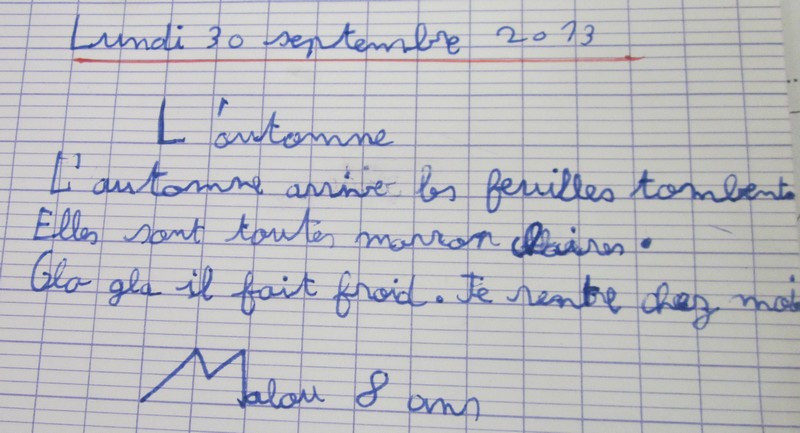 Lundi 30 septembre 2013
L'automne
L'automne arrive les feuilles tombent.
Elles sont toutes marron claires.
Gla gla il fait froid. Je rentre chez moi
Malou 8 ans